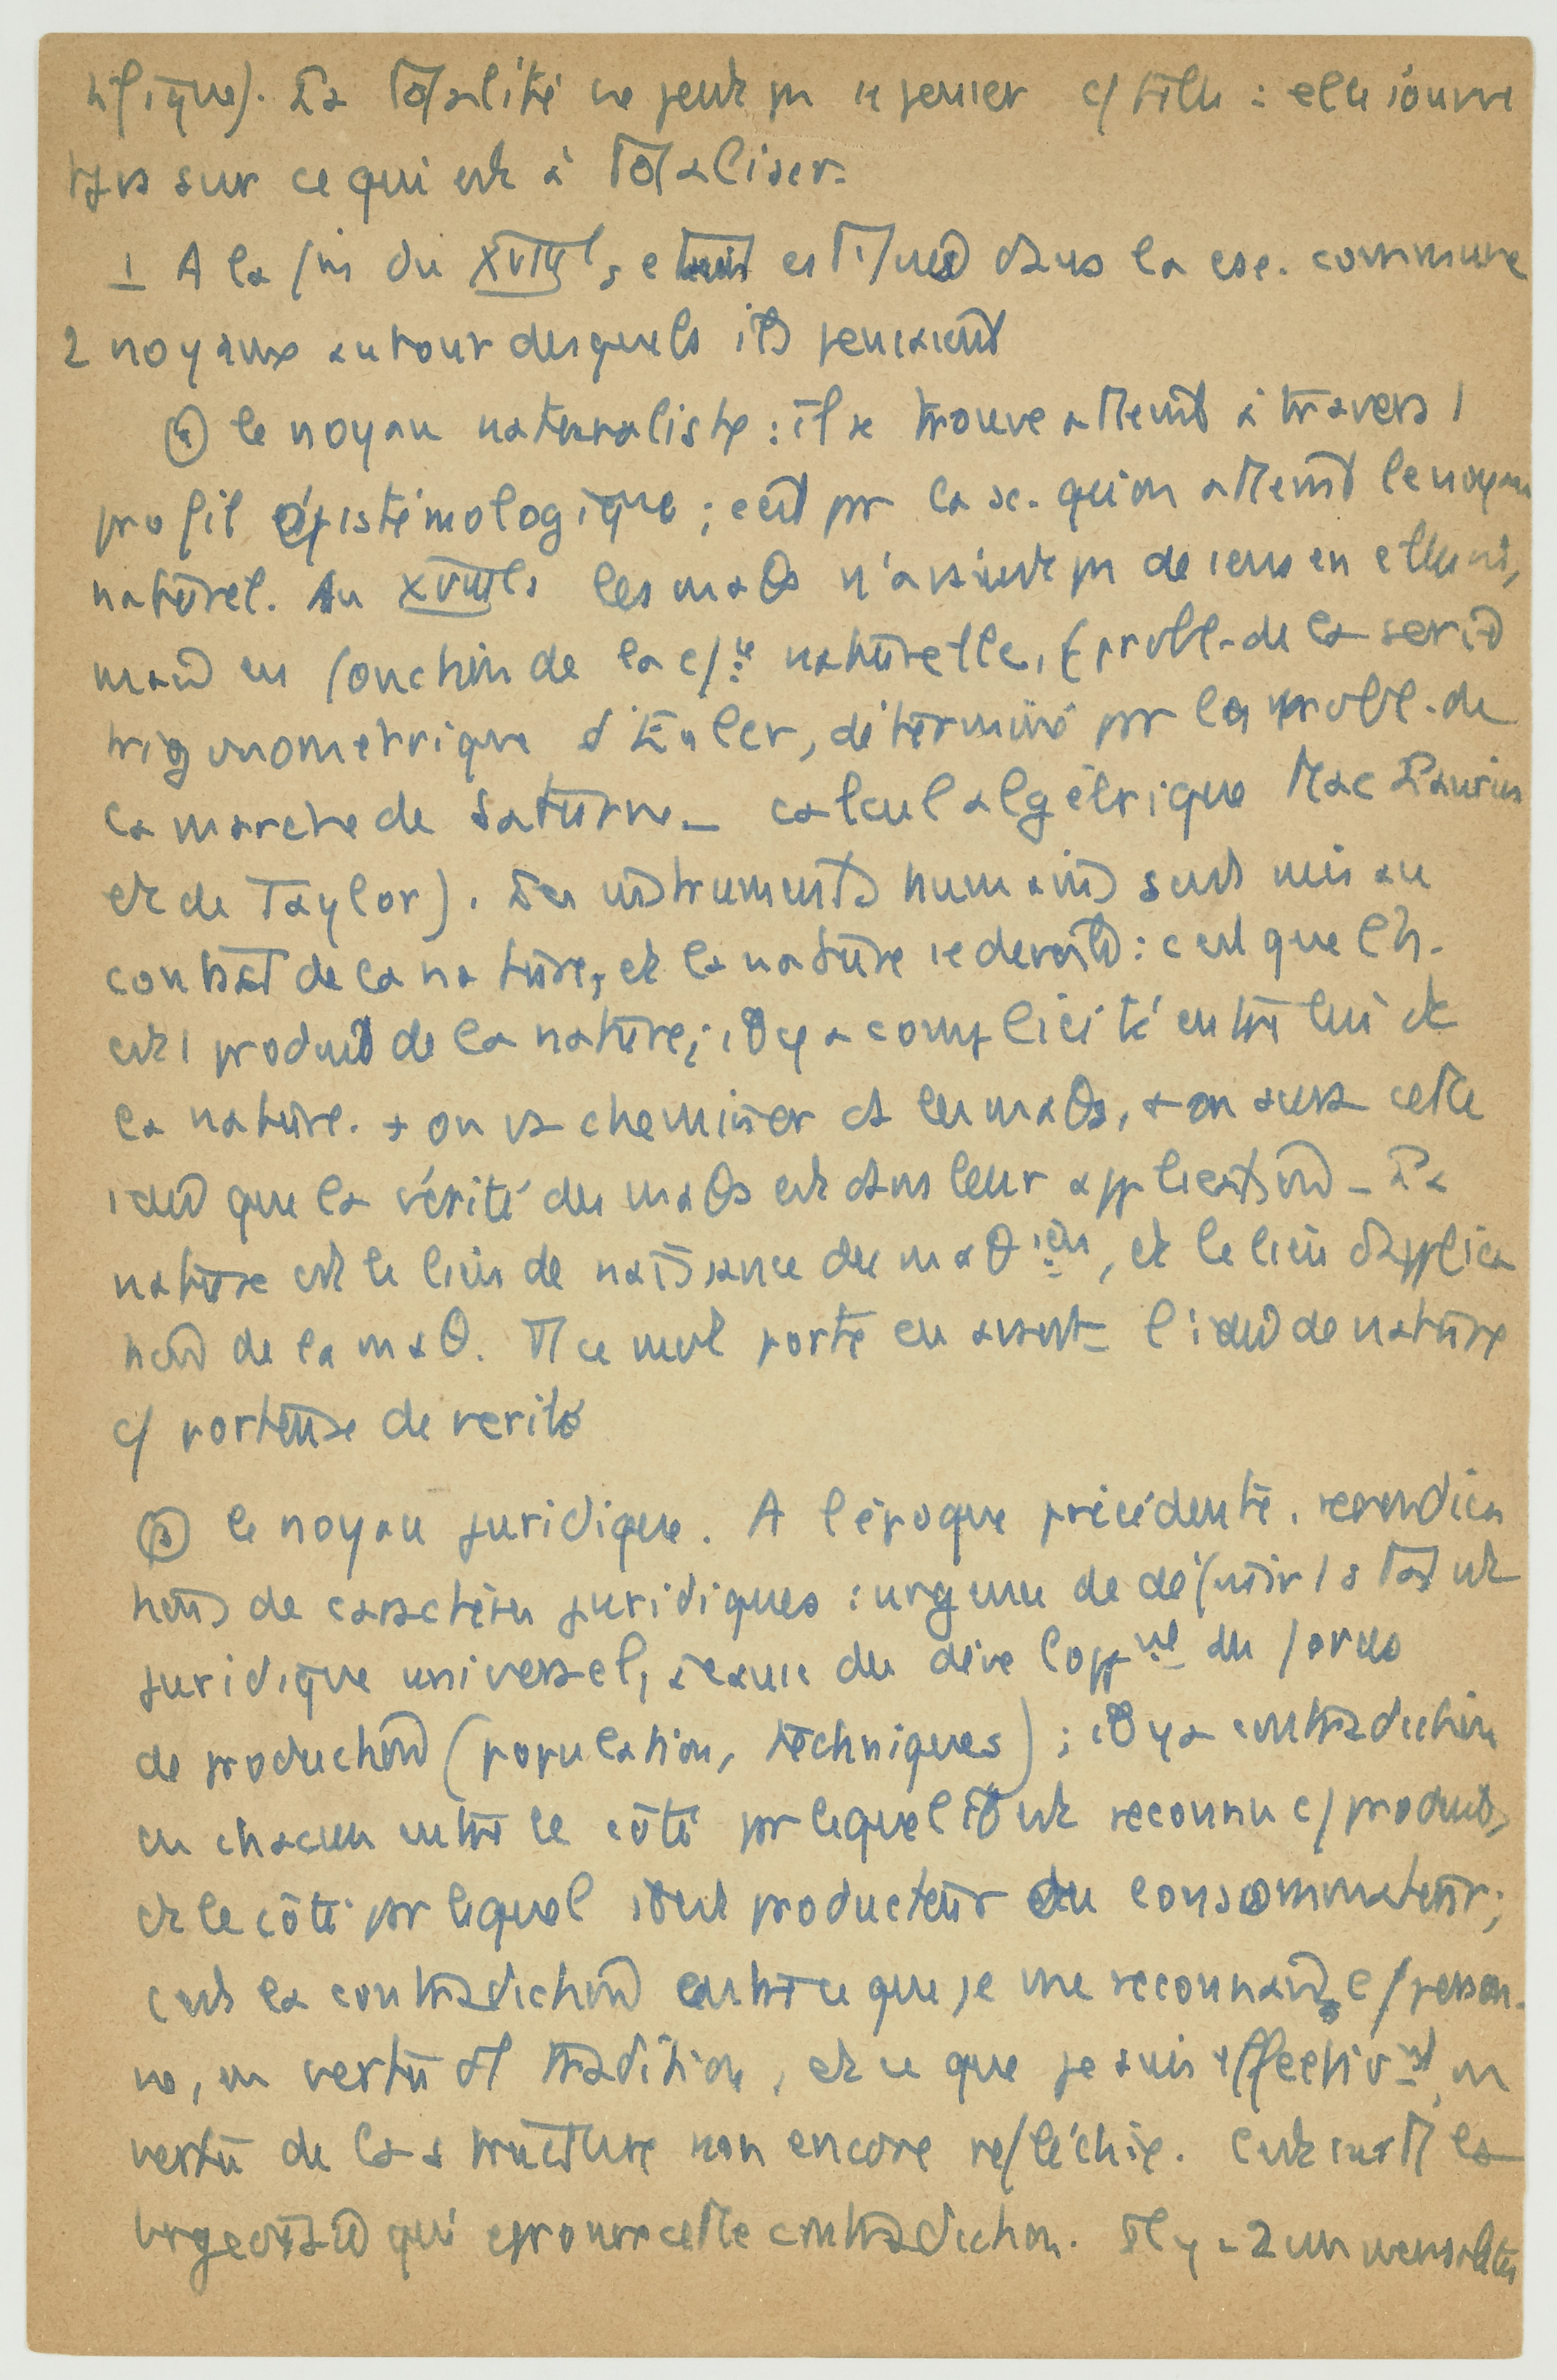 tifique). La totalité ne peut pas se penser c/ telle : elle s'ouvre
tjrs sur ce qui est à totaliser.
I A la fin du XVIIIe s, dans la csc. commune
2 noyaux autour desquels ils pensaient
ⓐ le noyau naturaliste : il se trouve atteint à travers 1
profil épistémologique ; c'est par la sc. qu'on atteint le noyau
naturel. Au XVIIIe s les maths n'avaient pas de sens en elles-m,
mais en fonction de la c/ce naturelle, (probl. de la série
trigonometrique d'Euler, déterminé par le probl. de
la marche de Saturne _ calcul algébrique Mac Laurin
et de Taylor). Les instruments humains sont mis au
contact de la nature, et la nature se dévoile : c'est que l'h.
est 1 produit de la nature ; il y a complicité entre lui et
la nature. + on va cheminer ds les maths, + on aura cette
idée que la vérité des maths est dans leur application _ La
nature est le lieu de naissance des mathien, et le lieu d'applica
tion de la math. Tt ce mvt porte en avant l'idée de nature
c/ porteuse de verité
ⓑ le noyau juridique. A l'époque précédente, revendica
tions de caractère juridiques : urgence de définir 1 statut
juridique universel, à cause du développmt des forces
de production (population, techniques) ; il y a contradiction
en chacun entre le côté par lequel il est reconnu c/ produit,
et le côté par lequel il est producteur et consommateur ;
c'est la contradiction entre ce que je me reconnais c/ person-
ne, en vertu d'1 tradition, et ce que je suis effectivmt, en
vertu de la structure non encore refléchie. C'est surtt la
brgeoisie qui eprouve cette contradiction. Il y a 2 universalités